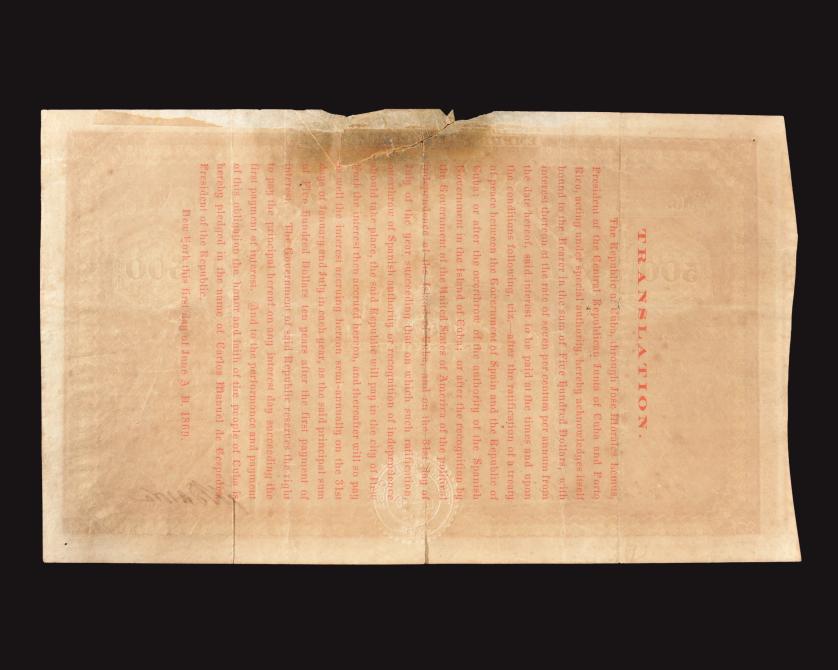 TRANSLATION.
The Republic of Cuba, through Jose Morales Lemus,
President of the Central Republican Junta of Cuba and Porto
Rico, acting under special authority, hereby acknowledges itself
bound to the Bearer in the sum of Five Hundred Dollars, with
interest thereon at the rate of seven per centum per annum from
the date hereof, said interest to be paid at the times and upon
the conditions following, viz:—after the ratification of a treaty
of peace between the Government of Spain and the Republic of
Cuba; or after the overthrow of the authority of the Spanish
Government in the Island of Cuba; or after the recognition by
the Government of the United States of America of the political
independence of the Island of Cuba, and on the 31st day of
of the year succeeding that on which such ratification,
overthrow of Spanish authority or recognition of independence
should take place, the said Republic will pay in the city of New
York the interest then accrued hereon, and thereafter will so pay
as well the interest accruing hereon semi-annually on the 31st
days of January and July in each year, as the said principal sum
of Five Hundred Dollars ten years after the first payment of
interest. The Government of said Republic reserves the right
to pay the principal hereof on any interest day succeeding the
first payment of interest. And to the performance and payment
of this obligation the honor and faith of the people of Cuba is
hereby pledged in the name of Carlos Manuel de Cespedes
President of the Republic.
New York this first day of June A. D. 1869.